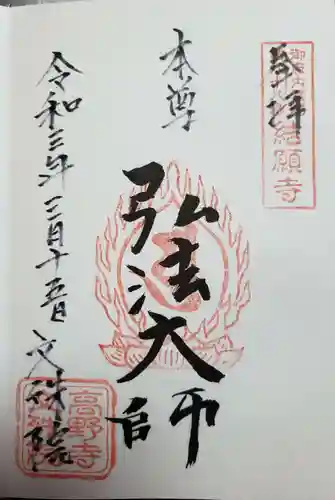 奉拝
結願寺
本尊
弘法大師
令和三年三月十五日
文殊院
高野寺